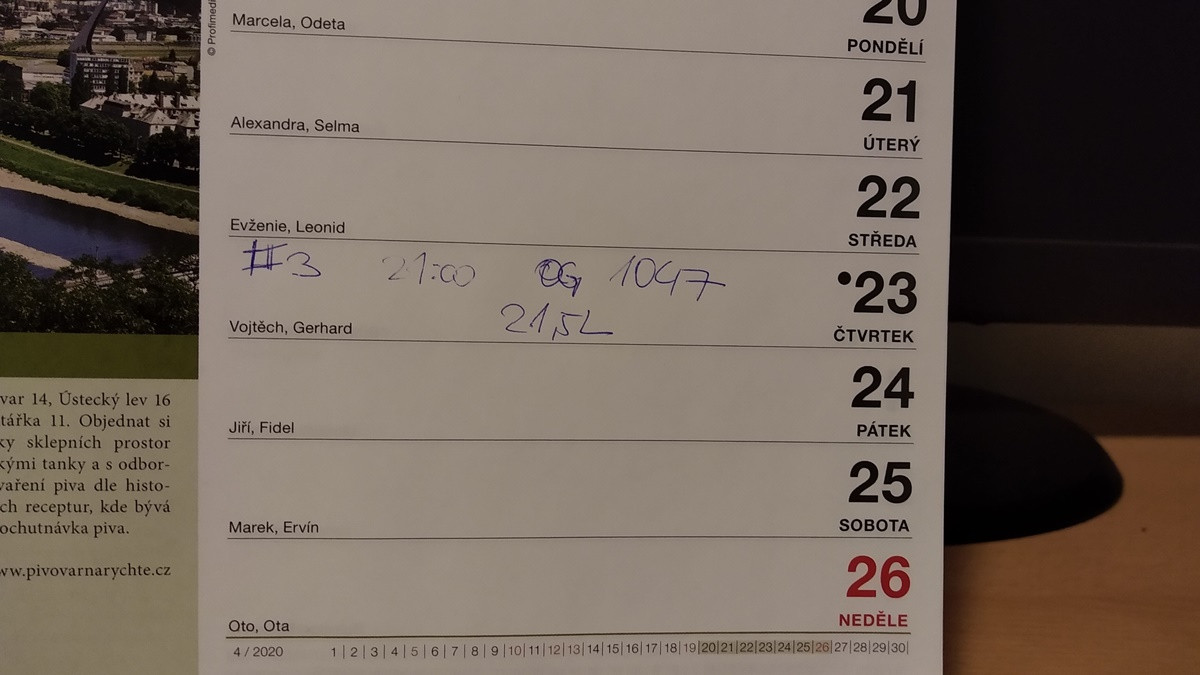 © Profimedi
20
Marcela, Odeta
PONDĚLÍ
21
Alexandra, Selma
ÚTERÝ
22
Evženie, Leonid
STŘEDA
#3 21:00 OG 1047
•23
21,5L
Vojtěch, Gerhard
ČTVRTEK
24
Jiří, Fidel
PÁTEK
25
Marek, Ervín
SOBOTA
26
Oto, Ota
NEDĚLE
4 / 2020
1 | 2 | 3 | 4 | 5 | 6 | 7 | 8 | 9 |10|11|12|13|14|15|16|17|18|19|20|21|22|23|24|25|26|27|28|29|30|
var 14, Ústecký lev 16
tářka 11. Objednat si
ky sklepních prostor
kými tanky a s odbor-
vaření piva dle histo-
ch receptur, kde bývá
ochutnávka piva.
ww.pivovarnarychte.cz